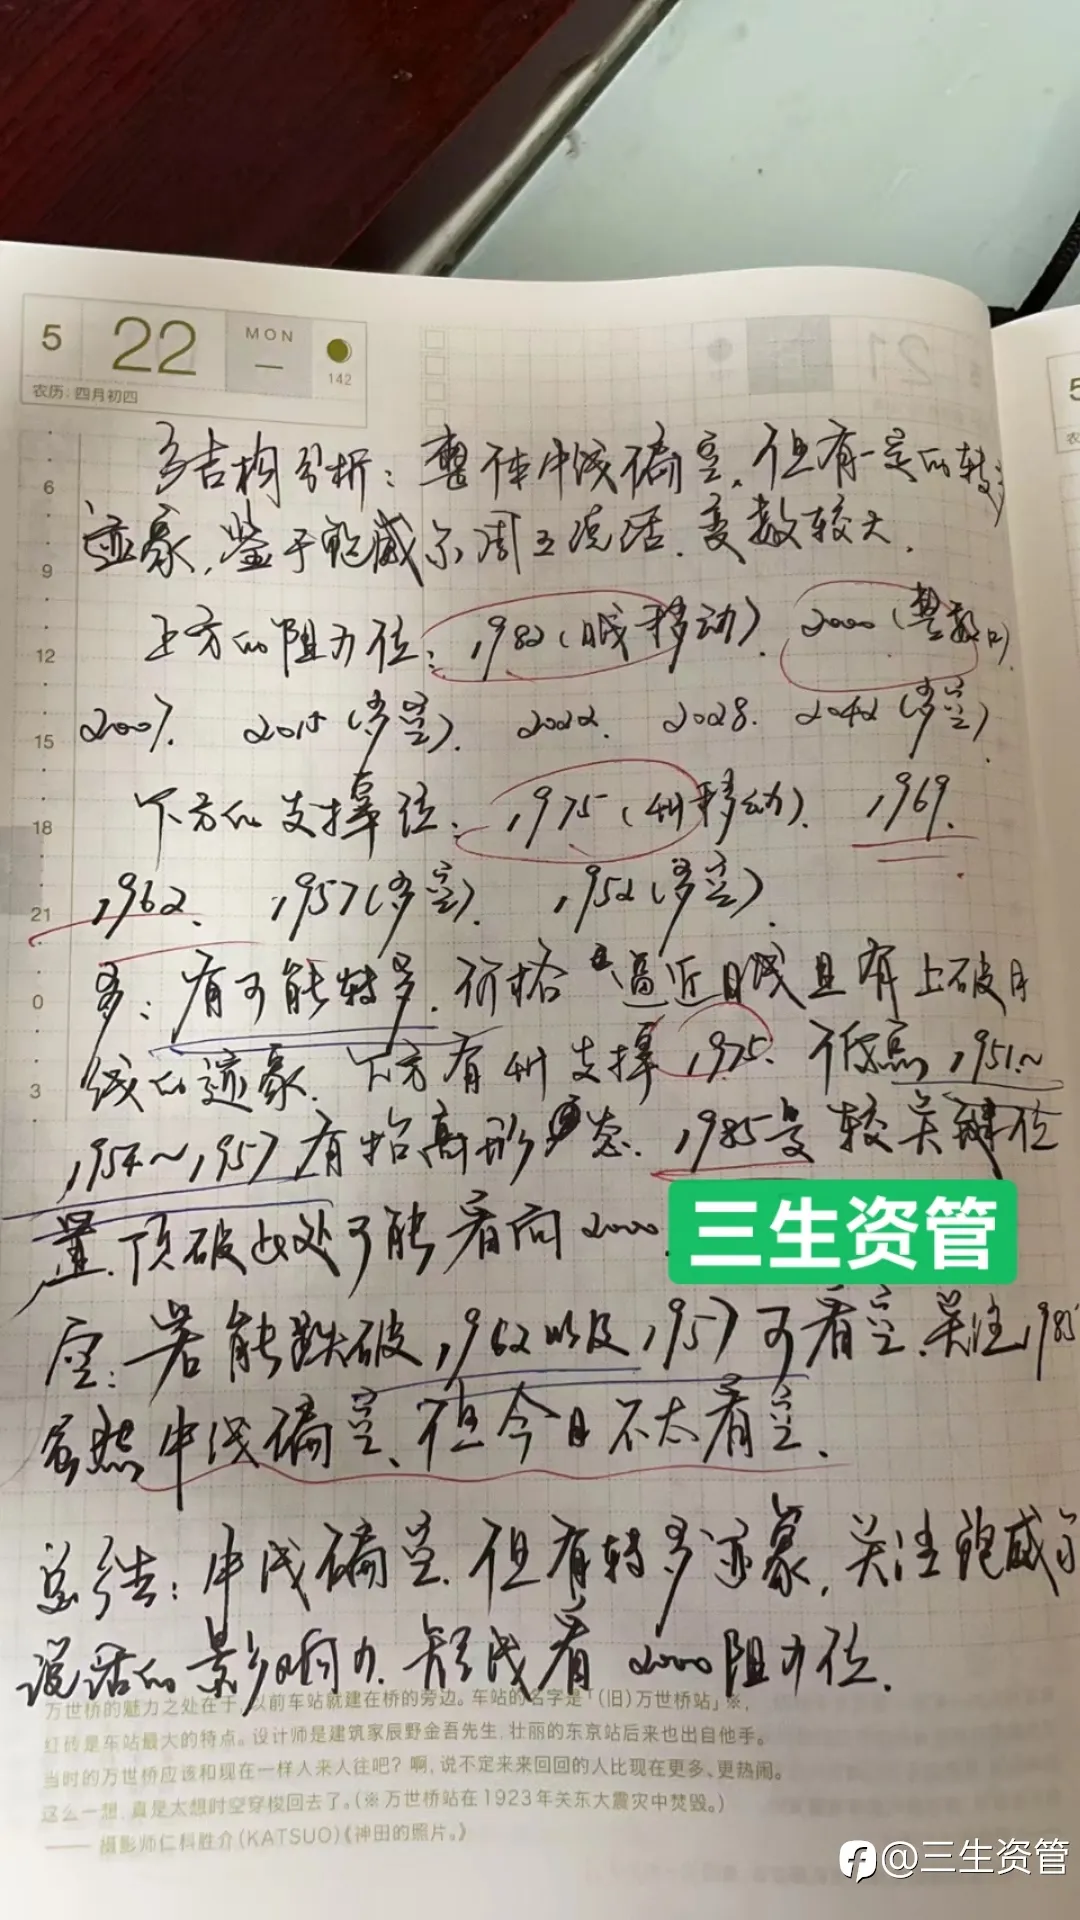 5 22 MON 一 142
农历: 四月初四
结构分析: 整体中线偏空, 但有一定的转
迹象, 鉴于鲍威尔周五说话, 变数较大.
上方的阻力位: 1982 (日线移动). 2000 (整数口).
2007. 2015 (多空). 2022. 2028. 2042 (多空)
下方的支撑位: 1975 (4H移动). 1969.
1962. 1957 (多空). 1952 (多空).
多: 有可能转多. 价格逼近日线且有上破月
线的迹象. 下方有4H支撑1975. 低点1951~
1954~1957有抬高形态. 1985是较关键位
置, 顶破此处可能看向2000.
空: 若能跌破1962以及1957可看空. 关注1985
虽然中线偏空, 但今日不太看空.
总结: 中线偏空, 但有转多迹象, 关注鲍威尔
说话的影响力. 短线看2000阻力位.
三生资管
6
9
12
15
18
21
0
3
万世桥的魅力之处在于, 以前车站就建在桥的旁边。车站的名字是「(旧)万世桥站」※,
红砖是车站最大的特点。设计师是建筑家辰野金吾先生, 壮丽的东京站后来也出自他手。
当时的万世桥应该和现在一样人来人往吧? 啊, 说不定来来回回的人比现在更多、更热闹。
这么一想, 真是太想时空穿梭回去了。(※万世桥站在1923年关东大震灾中焚毁。)
—— 摄影师仁科胜介(KATSUO)《神田的照片。》
@三生资管